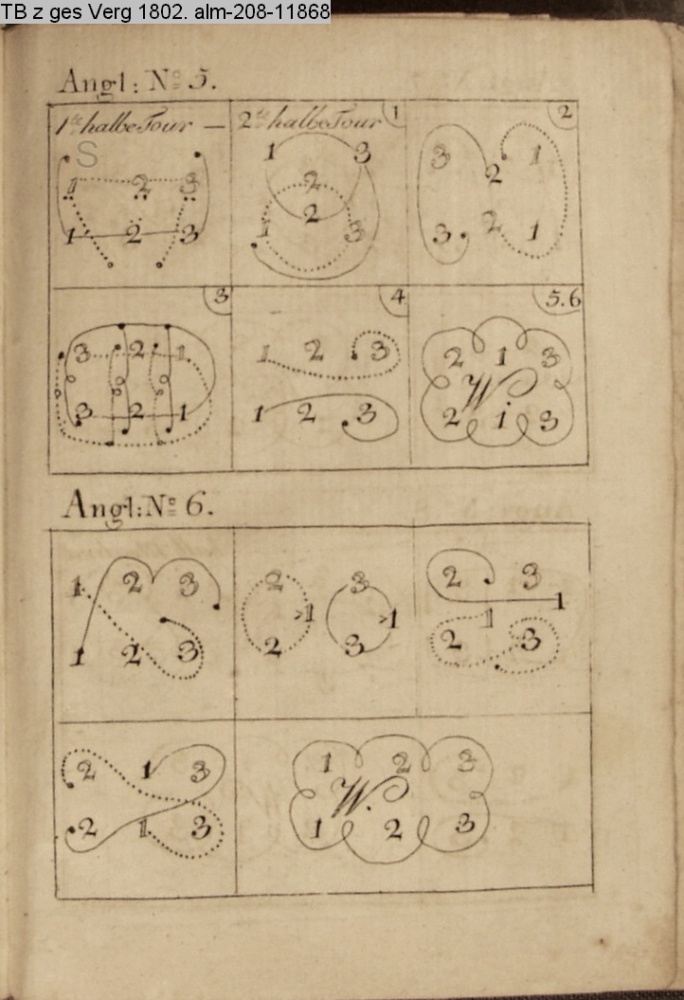 TB z ges Verg 1802. alm-208-11868
Angl: No 5.
1te halbe Tour — 2te halbe Tour 1 2
S
1 3 3 1
2 2
1 2 3 2
2
1 3 3 1
1 2 3
3 4 5.6
3 2 1 1 2 3 2 1 3
W.
3 2 1 1 2 3 2 1 3
Angl: No 6.
1 2 3 2 3 2 3
1 1 1
1
1 2 3 2 3 2 3
2 1 3 1 2 3
W.
2 1 3 1 2 3